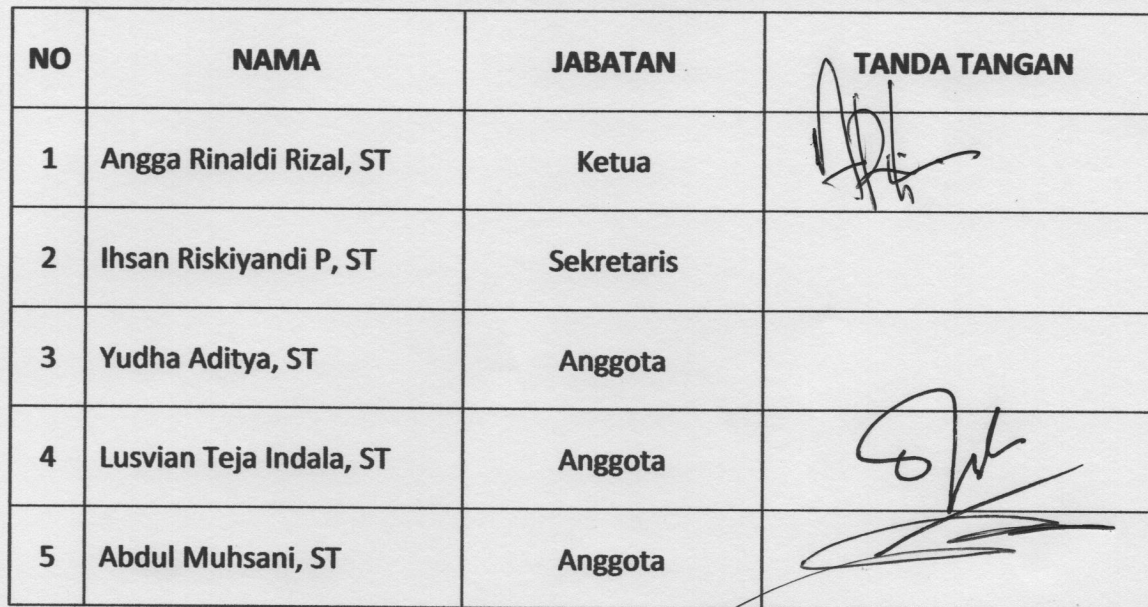 NO NAMA JABATAN TANDA TANGAN
1 Angga Rinaldi Rizal, ST Ketua
2 Ihsan Riskiyandi P, ST Sekretaris
3 Yudha Aditya, ST Anggota
4 Lusvian Teja Indala, ST Anggota
5 Abdul Muhsani, ST Anggota